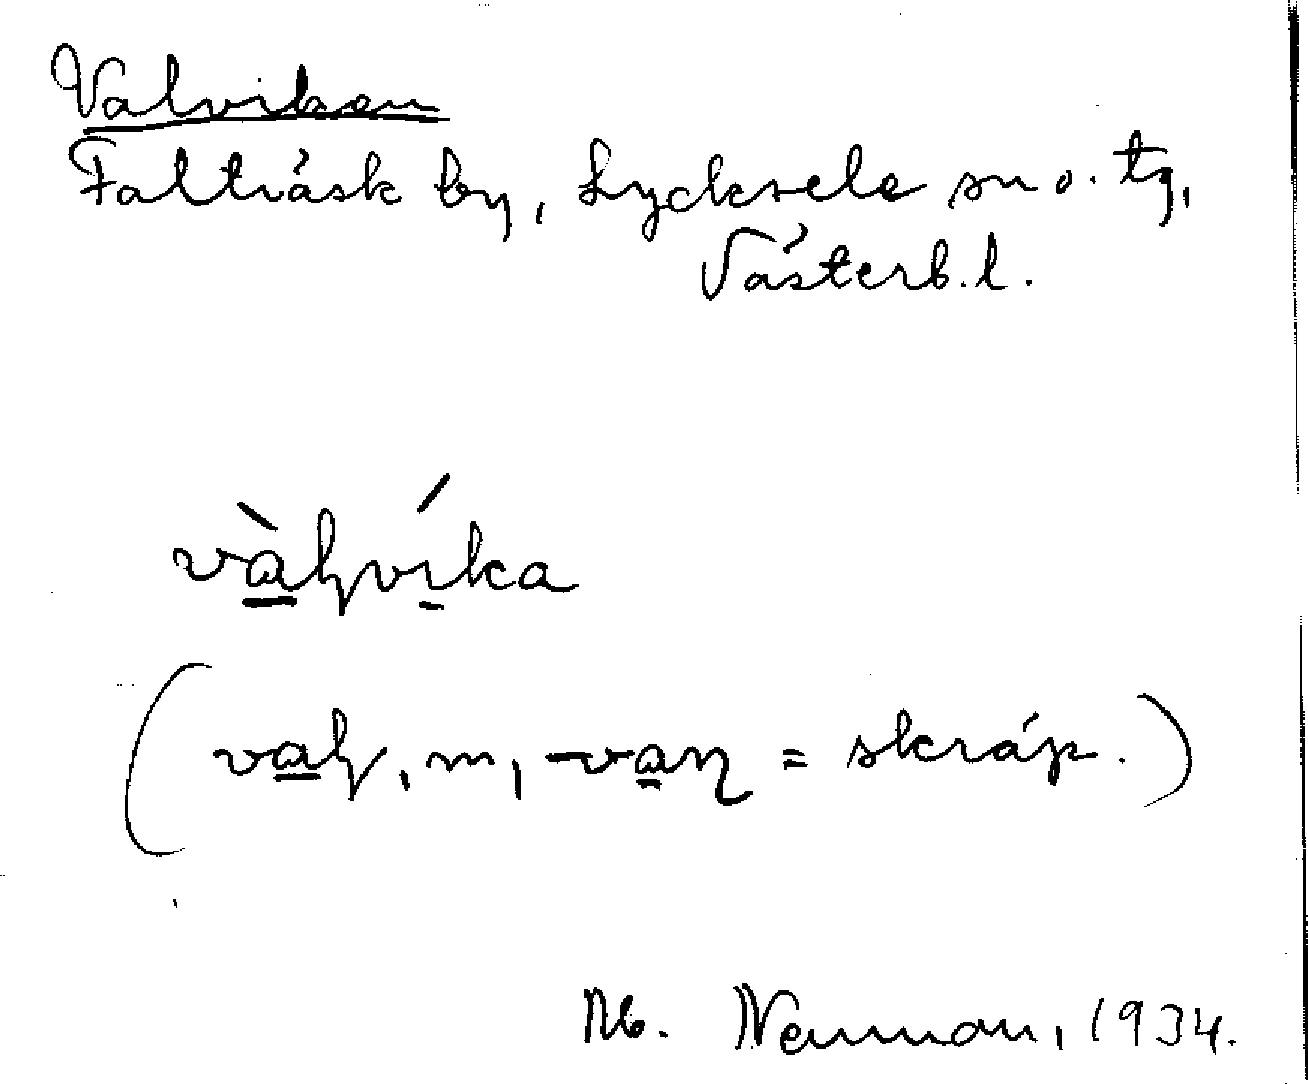 Valviken
Falträsk by, Lycksele sn o. tg,
Västerb.l.
vàḷvíka
(vaḷ, m, -van = skräp.)
M. Neuman, 1934.